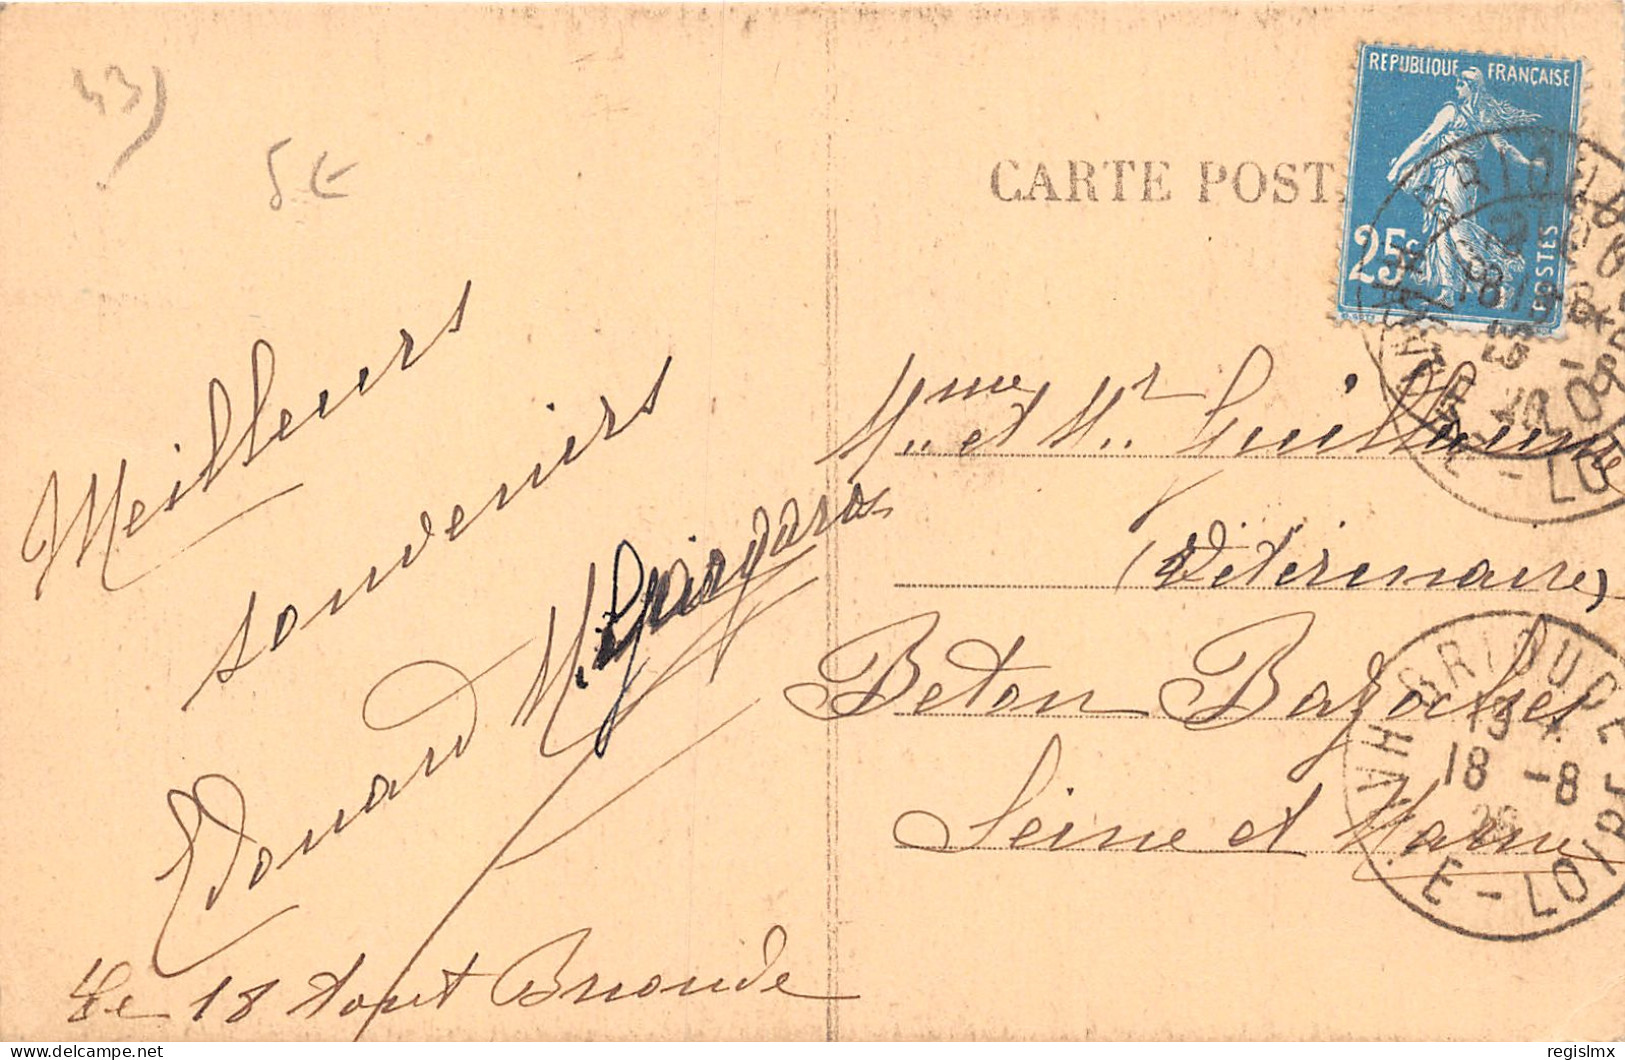 43)
5€
CARTE POST
REPUBLIQUE FRANÇAISE
25c
POSTES
Meilleurs
souvenirs
Edouard
Le 18 Aout Brioude
Mme et Mr Guillaume
(Vétérinaire)
Beton Bazoches
Seine et Marne
BRIOUDE
13
18 -8
26
HAUTE-LOIRE
delcampe.net
regislmx